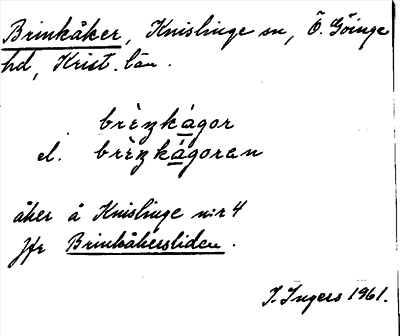 Brinkåker, Knislinge sn, Ö. Göinge
hd, Krist. län.
brèŋkágor
el. brèŋkágoran
åker å Knislinge nr 4
Jfr Brinkåkersliden.
I. Ingers 1961.